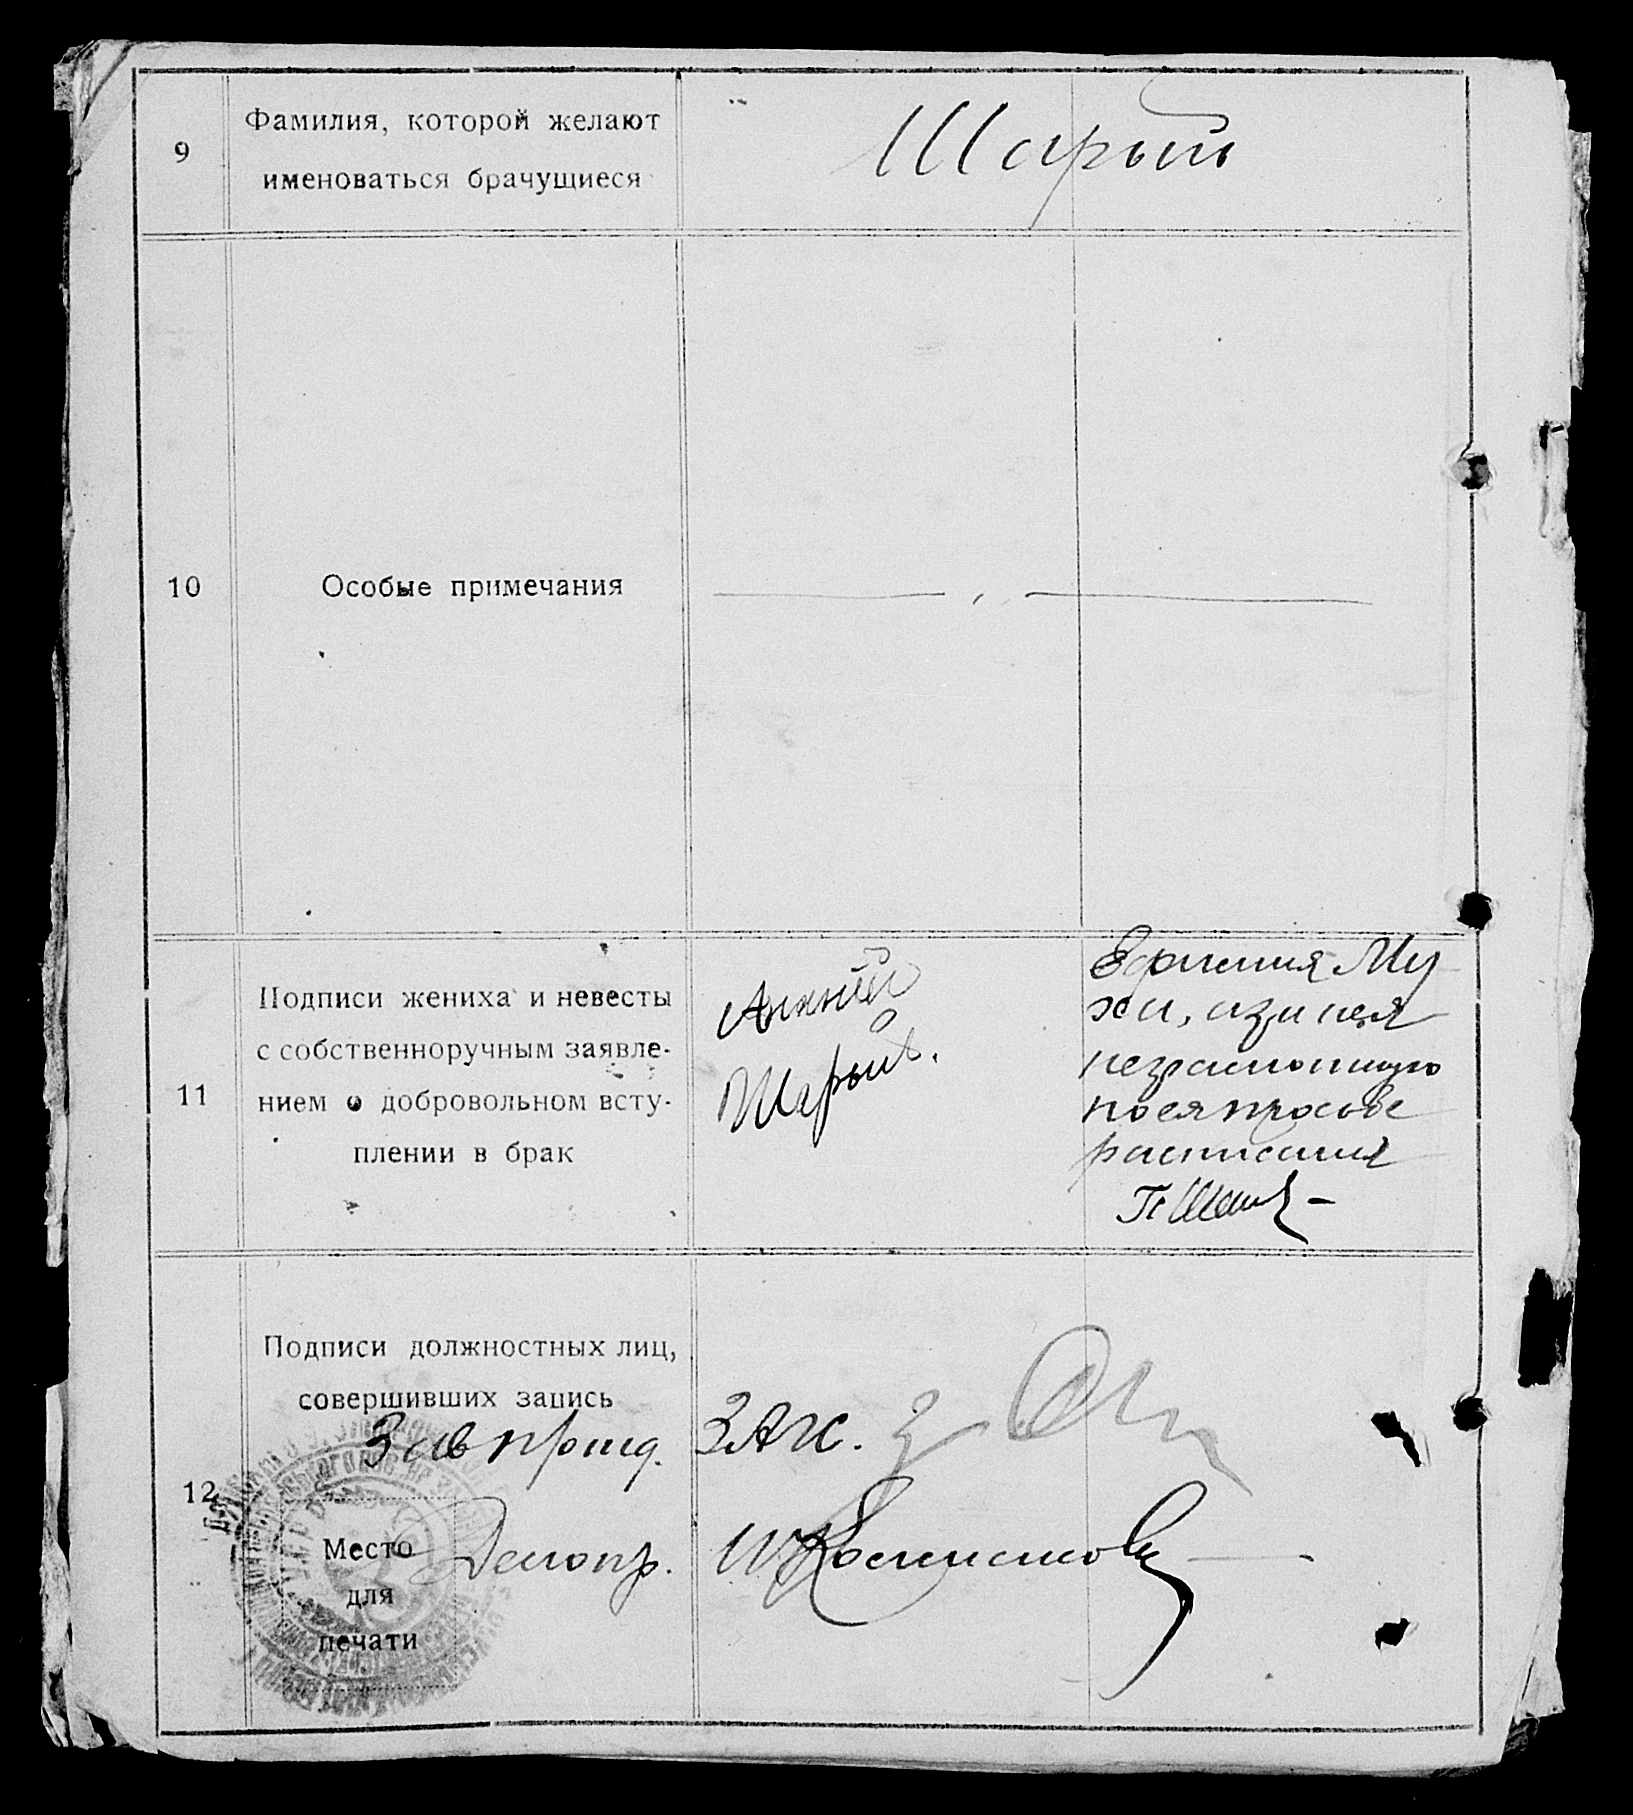 9
Фамилия, которой желают
именоваться брачущиеся
Шарый
10
Особые примечания
11
Подписи жениха и невесты
с собственноручным заявле-
нием о добровольном всту-
плении в брак
Шарый.
Ефимия Му
ха, а за нея
неграмотную
по ея просьбе
12
Подписи должностных лиц,
совершивших запись
ЗАГС.
Делопр.
Место
для
печати